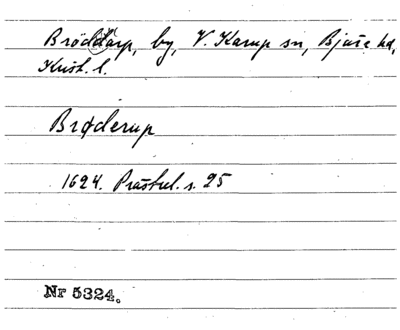 Bröddarp, by, V. Karup sn, Bjäre hd,
Krist. l.
Brøderup
1624. Prästrel. s. 25
Nr 5324.